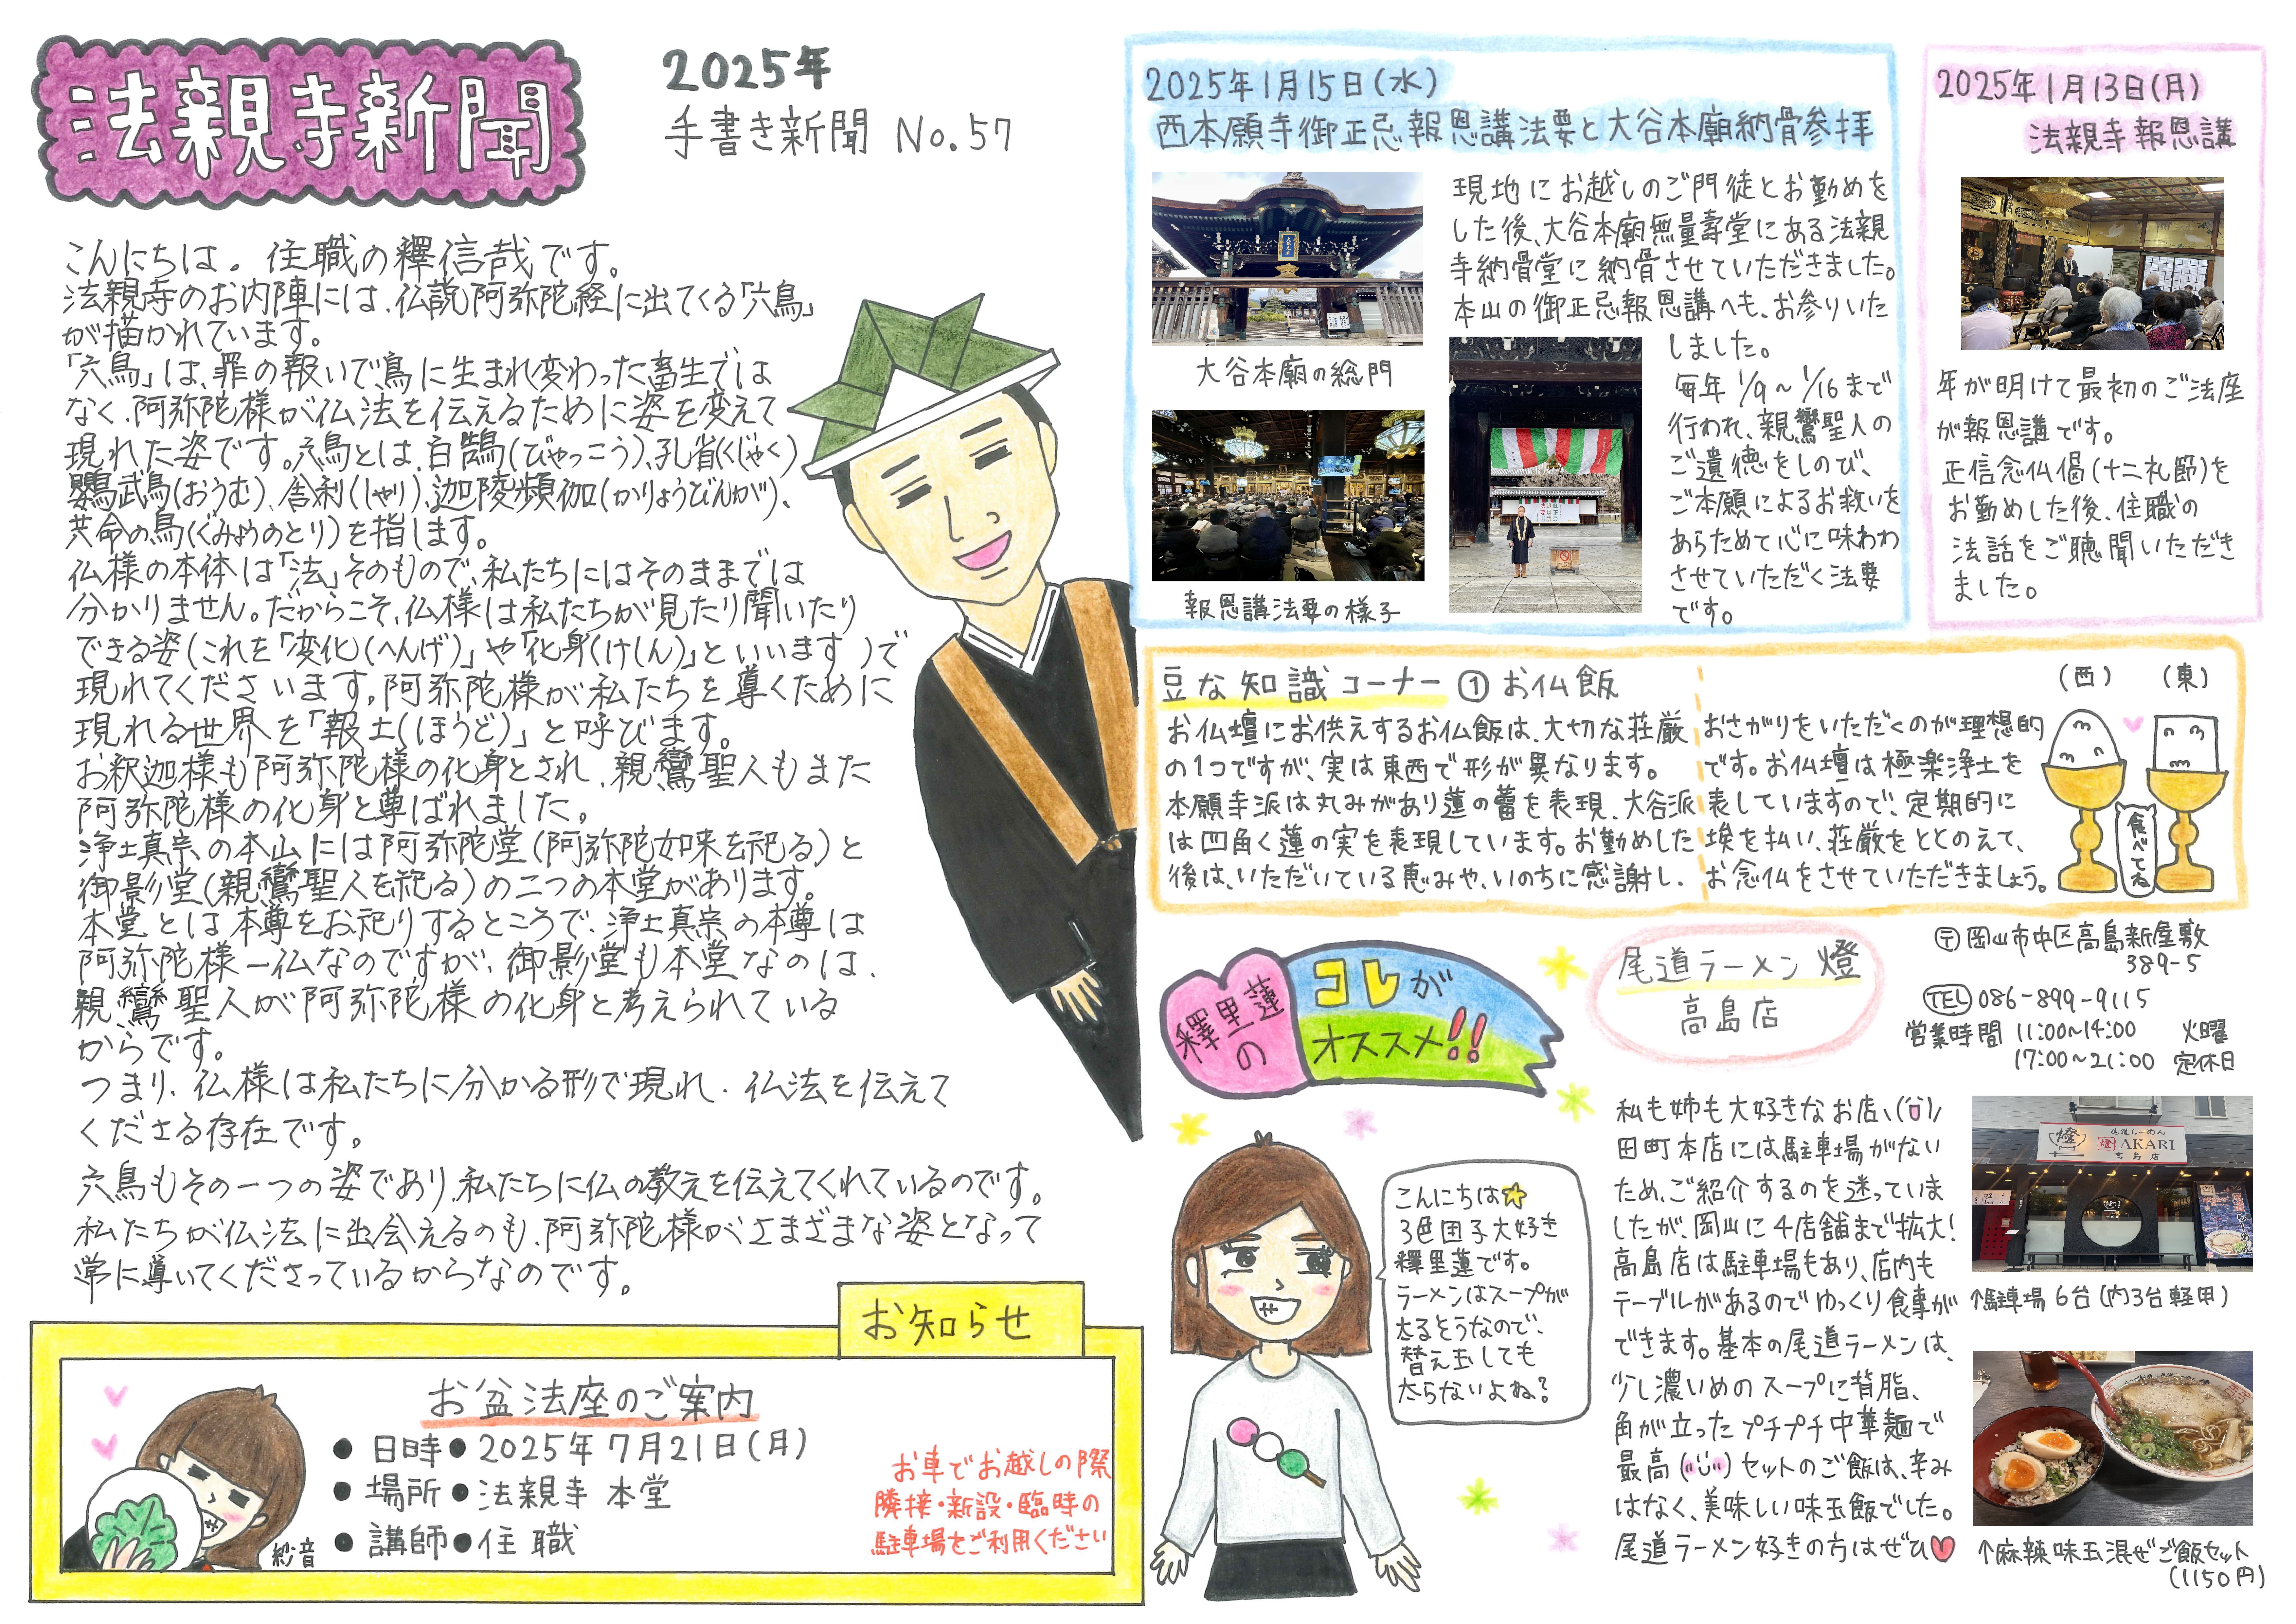 法親寺新聞
2025年
手書き新聞 No.57
こんにちは。住職の釋信哉です。
法親寺のお内陣には、仏説阿弥陀経に出てくる「六鳥」
が描かれています。
「六鳥」は、罪の報いで鳥に生まれ変わった畜生では
なく、阿弥陀様が仏法を伝えるために姿を変えて
現れた姿です。六鳥とは、白鵠(びゃっこう)、孔雀(くじゃく)
鸚鵡(おうむ)、舎利(しゃり)、迦陵頻伽(かりょうびんが)、
共命の鳥(ぐみょうのとり)を指します。
仏様の本体は「法」そのもので、私たちにはそのままでは
分かりません。だからこそ、仏様は私たちが見たり聞いたり
できる姿(これを「変化(へんげ)」や「化身(けしん)」といいます)で
現れてくださいます。阿弥陀様が私たちを導くために
現れる世界を「報土(ほうど)」と呼びます。
お釈迦様も阿弥陀様の化身とされ、親鸞聖人もまた
阿弥陀様の化身と尊ばれました。
浄土真宗の本山には阿弥陀堂(阿弥陀如来を祀る)と
御影堂(親鸞聖人を祀る)の二つの本堂があります。
本堂とは本尊をお祀りするところで、浄土真宗の本尊は
阿弥陀様一仏なのですが、御影堂も本堂なのは、
親鸞聖人が阿弥陀様の化身と考えられている
からです。
つまり、仏様は私たちに分かる形で現れ、仏法を伝えて
くださる存在です。
六鳥もその一つの姿であり、私たちに仏の教えを伝えてくれているのです。
私たちが仏法に出会えるのも、阿弥陀様がさまざまな姿となって
常に導いてくださっているからなのです。
お知らせ
お盆法座のご案内
● 日時● 2025年7月21日(月)
● 場所● 法親寺 本堂
● 講師● 住職
お車でお越しの際
隣接・新設・臨時の
駐車場をご利用ください
紗音
2025年1月15日(水)
西本願寺御正忌報恩講法要と大谷本廟納骨参拝
大谷本廟の総門
報恩講法要の様子
現地にお越しのご門徒とお勤めを
した後、大谷本廟無量壽堂にある法親
寺納骨堂に納骨させていただきました。
本山の御正忌報恩講へも、お参りいた
しました。
毎年1/9～1/16まで
行われ、親鸞聖人の
ご遺徳をしのび、
ご本願によるお救いを
あらためて心に味わわ
させていただく法要
です。
2025年1月13日(月)
法親寺報恩講
年が明けて最初のご法座
が報恩講です。
正信念仏偈(十二礼節)を
お勤めした後、住職の
法話をご聴聞いただき
ました。
豆な知識コーナー ① お仏飯
お仏壇にお供えするお仏飯は、大切な荘厳
の1つですが、実は東西で形が異なります。
本願寺派は丸みがあり蓮の蕾を表現、大谷派
は四角く蓮の実を表現しています。お勤めした
後は、いただいている恵みや、いのちに感謝し、
おさがりをいただくのが理想的
です。お仏壇は極楽浄土を
表していますので、定期的に
埃を払い、荘厳をととのえて、
お念仏をさせていただきましょう。
(西) (東)
食べてね
釋里蓮の
コレが
オススメ!!
尾道ラーメン 燈
高島店
〒岡山市中区高島新屋敷
389-5
TEL 086-899-9115
営業時間 11:00～14:00 火曜
17:00～21:00 定休日
こんにちは☆
3色団子大好き
釋里蓮です。
ラーメンはスープが
太るそうなので、
替え玉しても
太らないよね?
私も姉も大好きなお店、
田町本店には駐車場がない
ため、ご紹介するのを迷っていま
したが、岡山に4店舗まで拡大!
高島店は駐車場もあり、店内も
テーブルがあるのでゆっくり食事が
できます。基本の尾道ラーメンは、
少し濃いめのスープに背脂、
角が立ったプチプチ中華麺で
最高 セットのご飯は、辛み
はなく、美味しい味玉飯でした。
尾道ラーメン好きの方はぜひ♥
尾道らーめん
燈 AKARI
高島店
↑駐車場6台(内3台軽用)
↑麻辣味玉混ぜご飯セット
(1150円)